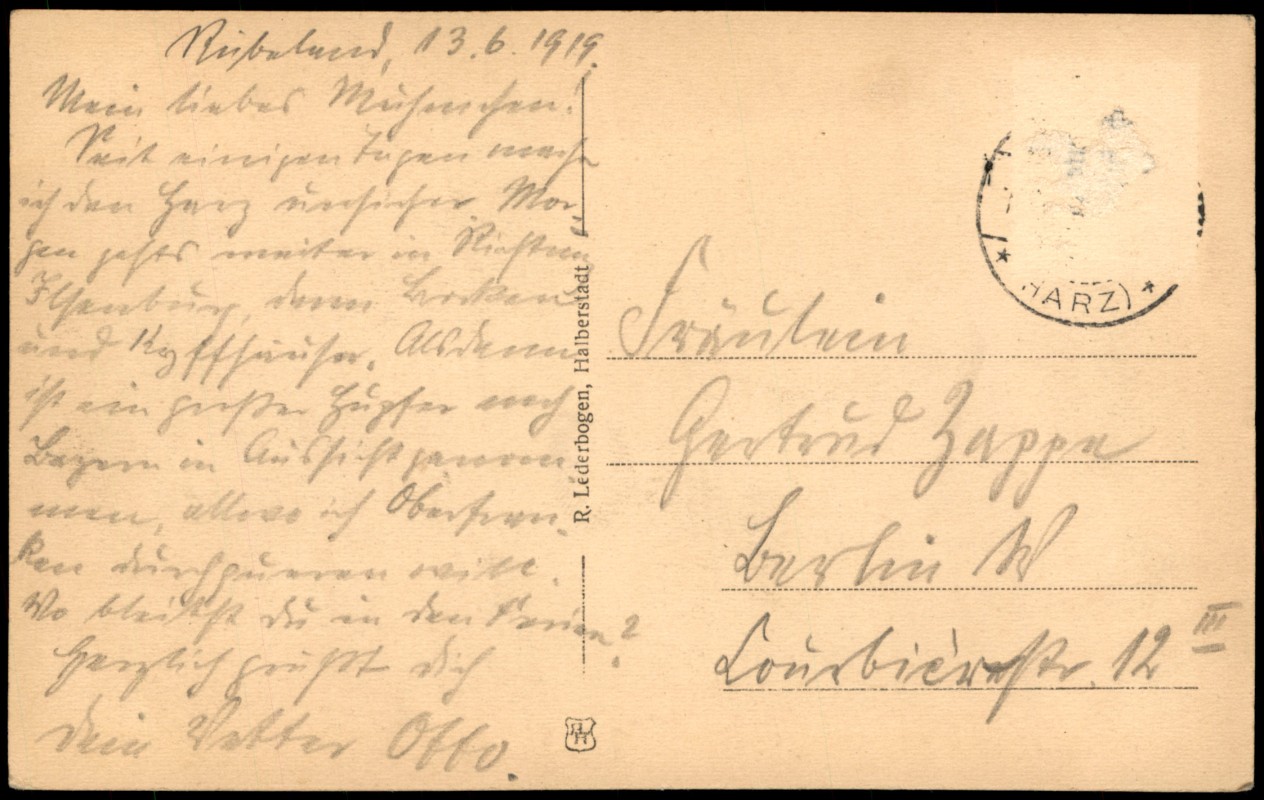 Rübeland, 13.6.1919.
Mein liebes Muhmchen!
Seit einigen Tagen mache
ich den Harz unsicher. Mor-
gen gehts weiter in Richtung
Ilsenburg, dann Brocken
und Kyffhäuser. Alsdann
ist ein großer Hupfer nach
Bayern in Aussicht genom-
men, allwo ich Oberfran-
ken durchqueren will.
Wo bleibst du in den Ferien?
Herzlich grüßt dich
dein Vetter Otto.
R. Lederbogen, Halberstadt
HARZ)
Fräulein
Gertrud Zappe
Berlin W
Courbièrestr. 12 III